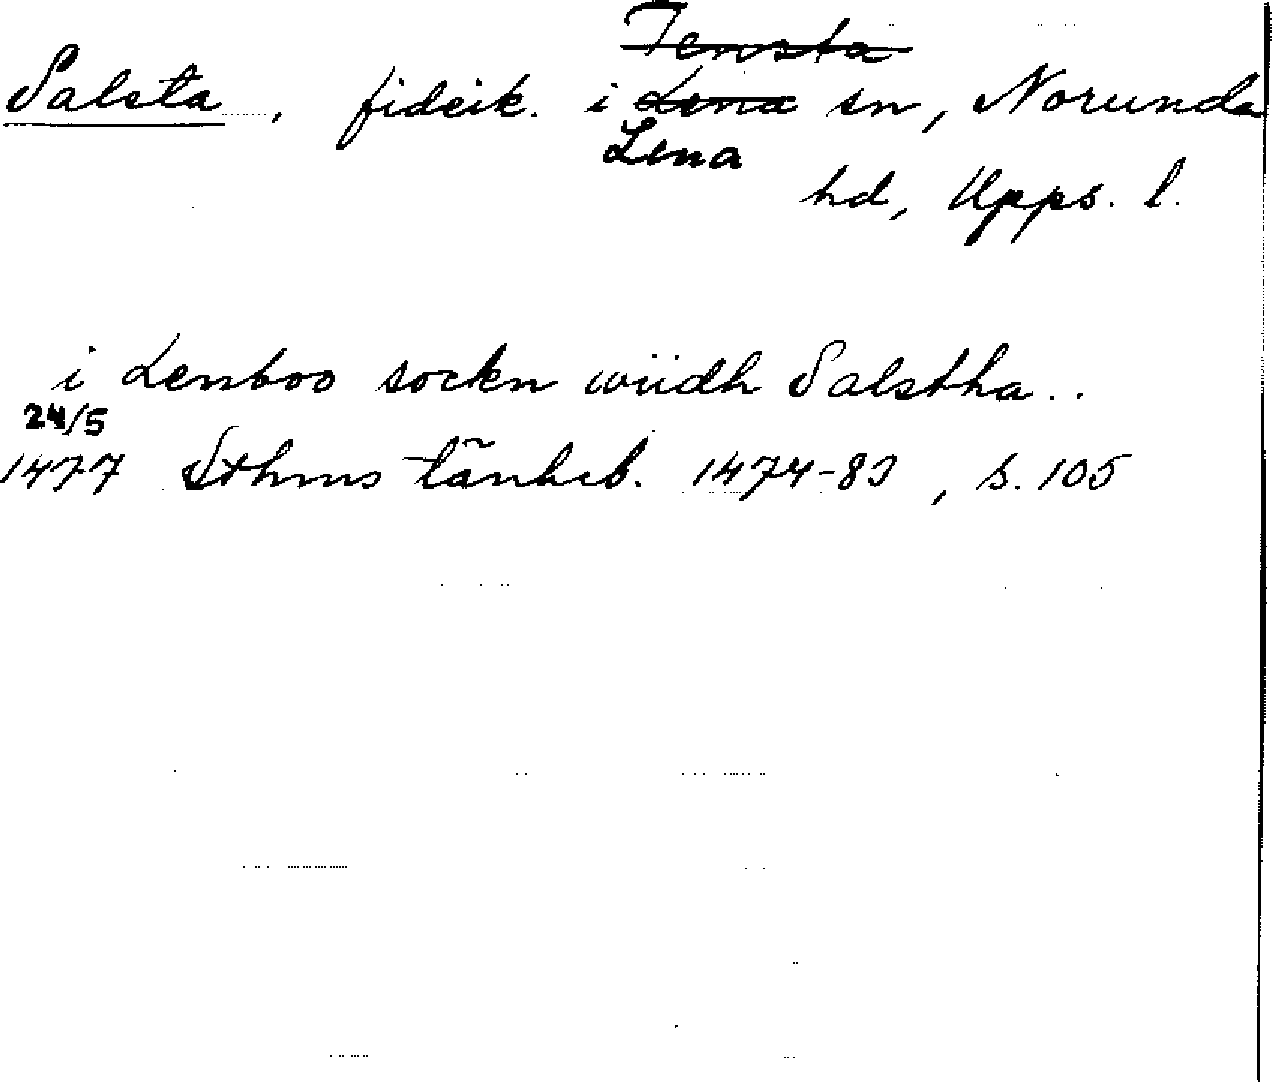 Tensta
Salsta, fideik. i Lena sn, Norunda
Lena
hd, Upps. l.
i Lenboo sockn wiidh Salstha..
24/5
1477 Sthms tänkeb. 1474-83, s. 105